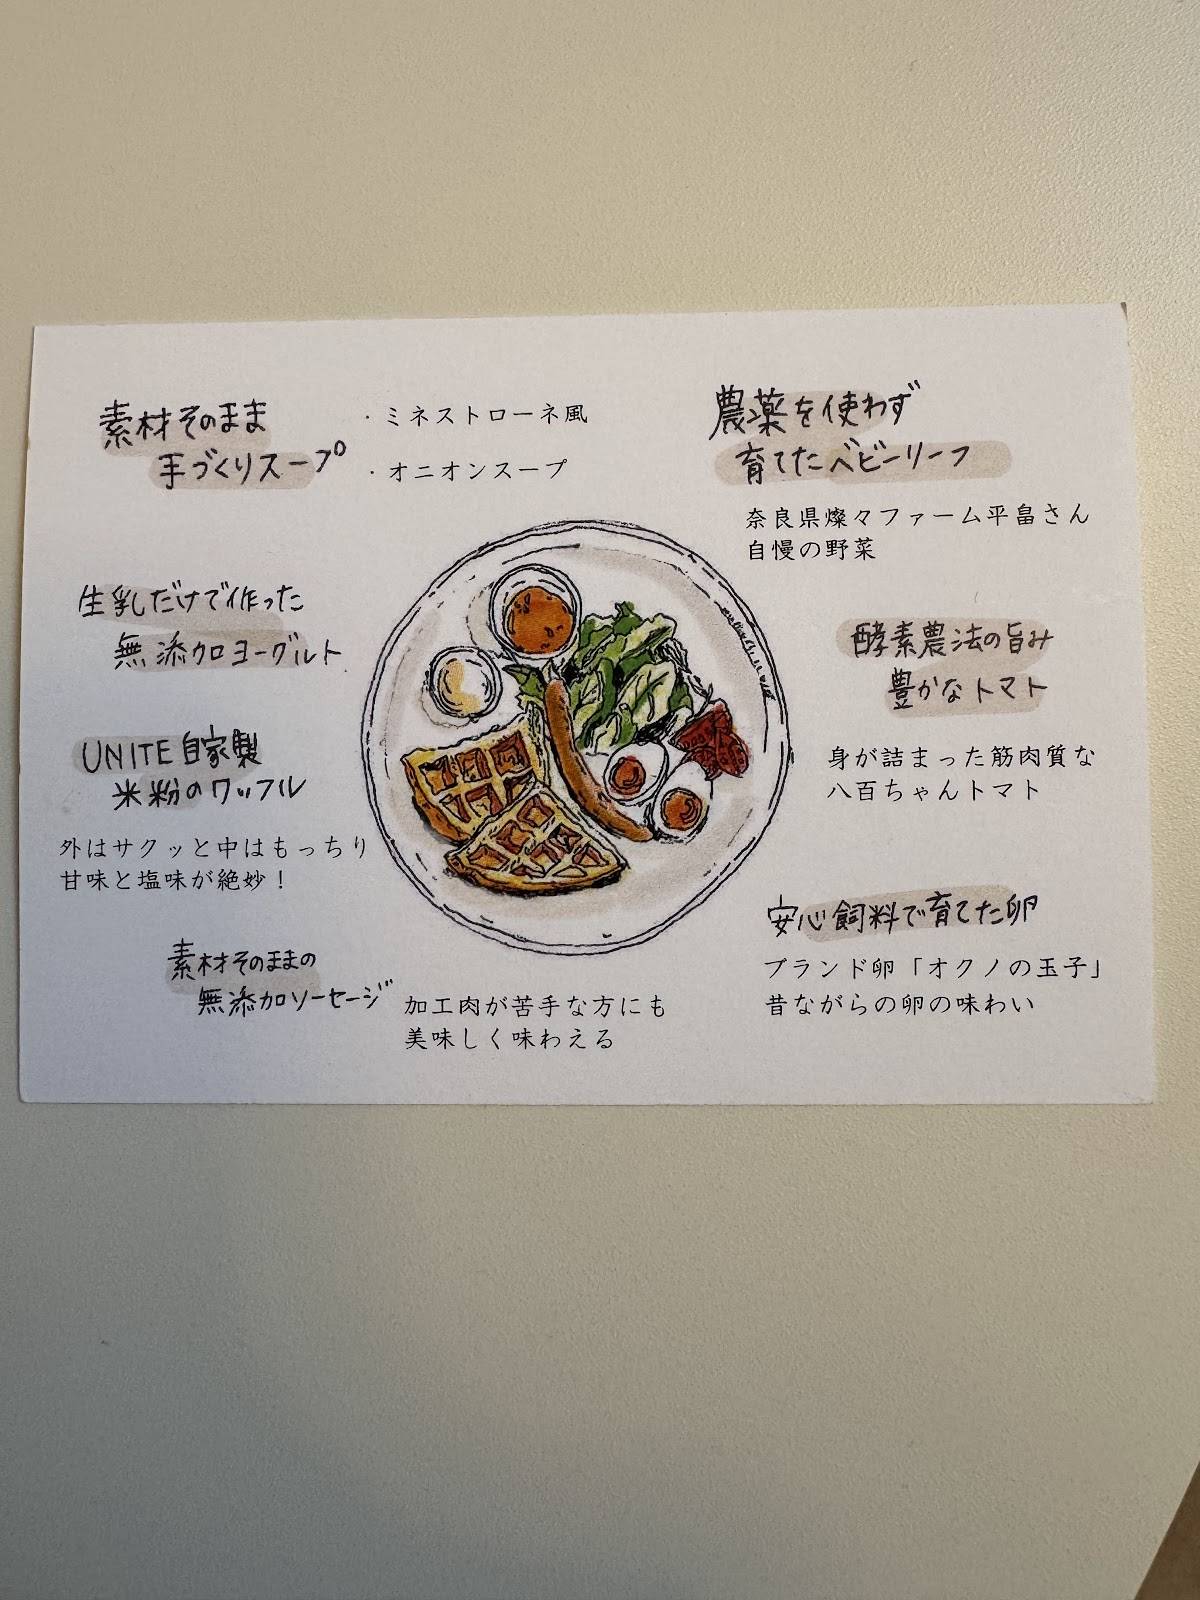 素材そのまま
手づくりスープ
・ミネストローネ風
・オニオンスープ
農薬を使わず
育てたベビーリーフ
奈良県燦々ファーム平畠さん
自慢の野菜
生乳だけで作った
無添加ヨーグルト
酵素農法の旨み
豊かなトマト
身が詰まった筋肉質な
八百ちゃんトマト
UNITE自家製
米粉のワッフル
外はサクッと中はもっちり
甘味と塩味が絶妙！
安心飼料で育てた卵
ブランド卵「オクノの玉子」
昔ながらの卵の味わい
素材そのままの
無添加ソーセージ
加工肉が苦手な方にも
美味しく味わえる